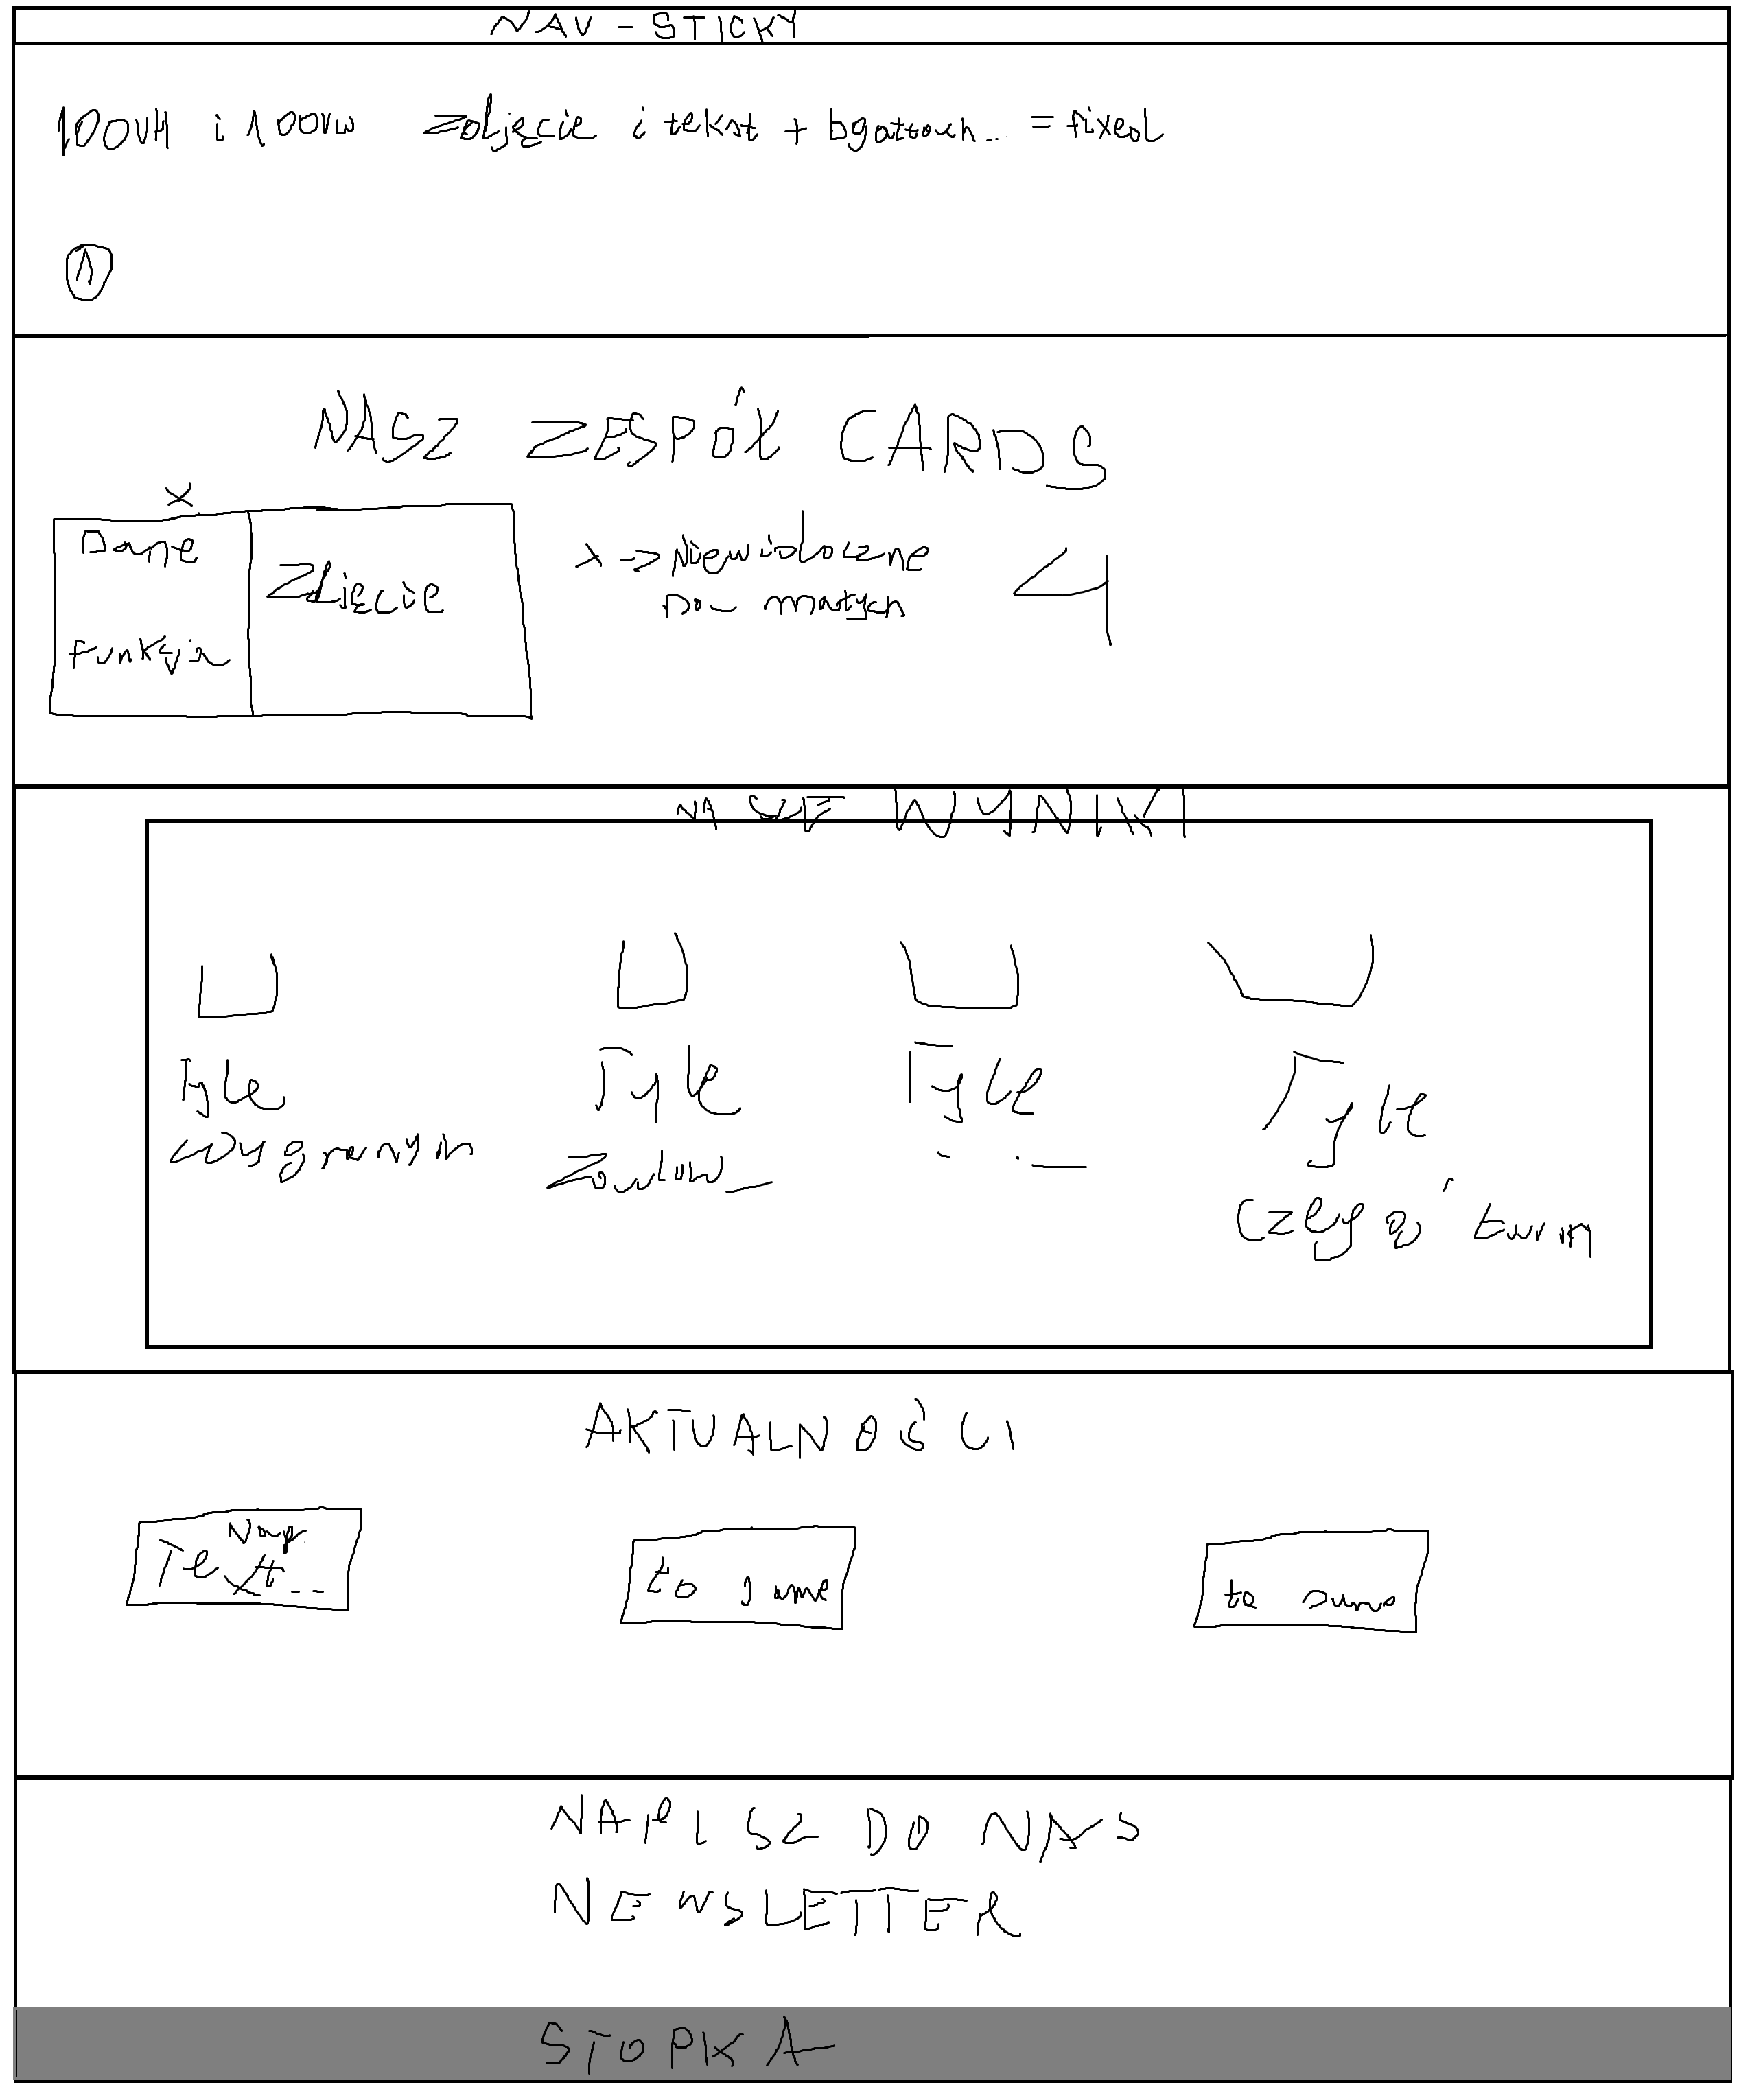 NAV - STICKY
100VH i 100VW zdjęcie i tekst + bgattach... = fixed
1
NASZ ZESPÓŁ CARDS
x
Dane
Funkcja
Zdjęcie
x -> Niewidoczne
Dla małych
4
NASZE WYNIKI
Tyle
wygranych
Tyle
Zawodow_
Tyle
Tyle
czegoś
AKTUALNOŚCI
Text...
to same
to samo
NAPISZ DO NAS
NEWSLETTER
STOPKA